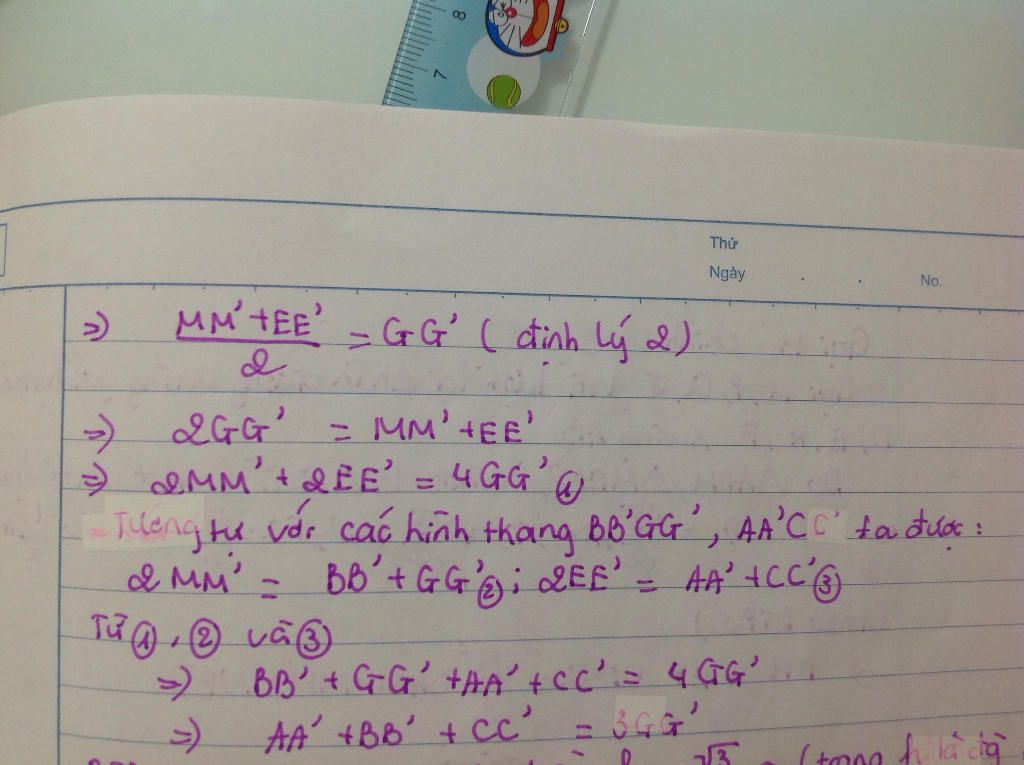 8
7
Thứ
Ngày . . No.
=> MM' + EE' / 2 = GG' (định lý 2)
=> 2GG' = MM' + EE'
=> 2MM' + 2EE' = 4GG' ①
= Tương tự với các hình thang BB'GG', AA'CC' ta được:
2MM' = BB' + GG' ②; 2EE' = AA' + CC' ③
Từ ①, ② và ③
=> BB' + GG' + AA' + CC' = 4GG'
=> AA' + BB' + CC' = 3GG'
√3 (trong h là